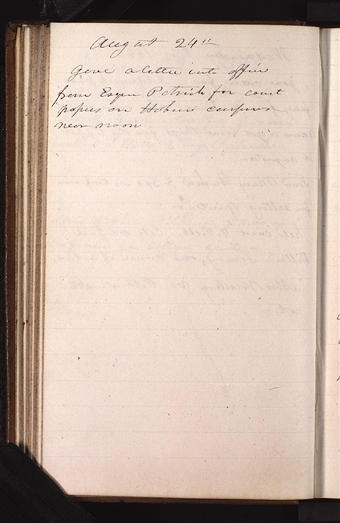 August 24th
Gave a letter into office
from Esqr Patrick for court
papers on Habeas corpus
near noon